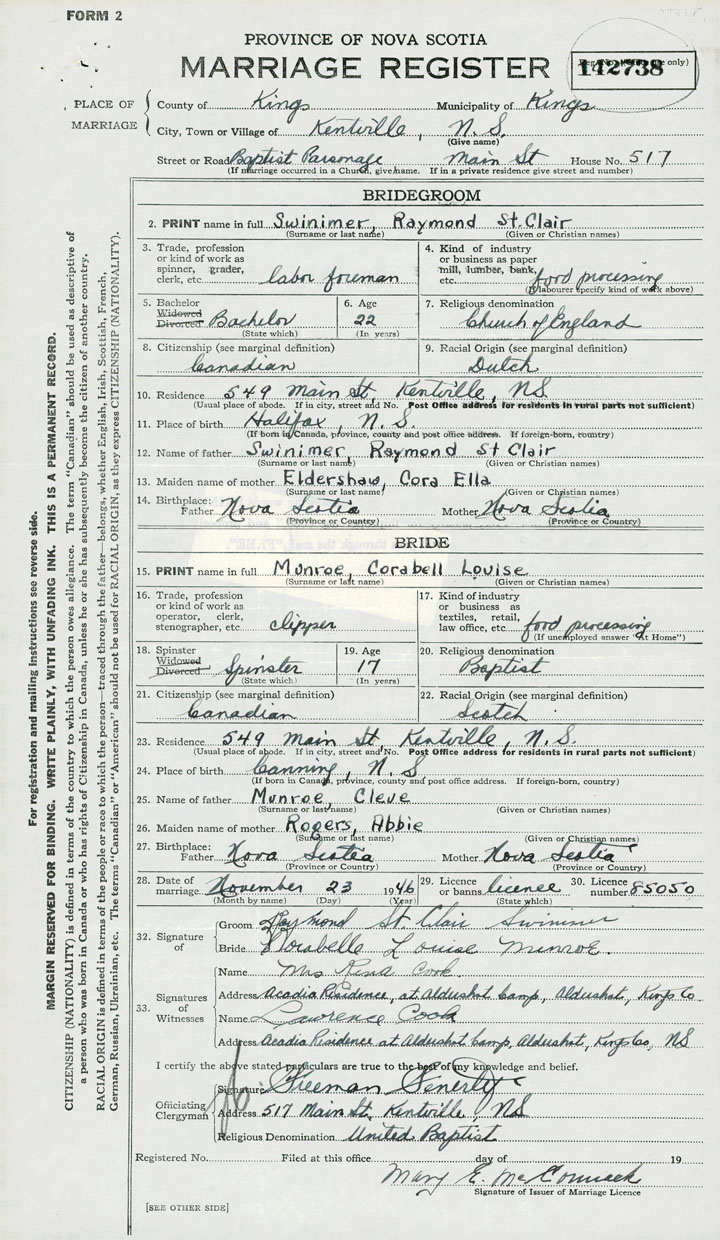 FORM 2
PROVINCE OF NOVA SCOTIA
MARRIAGE REGISTER
142738
PLACE OF MARRIAGE
County of Kings Municipality of Kings
City, Town or Village of Kentville, N. S.
(Give name)
Street or Road Baptist Parsonage Main St House No. 517
(If marriage occurred in a Church, give name. If in a private residence give street and number)
BRIDEGROOM
2. PRINT name in full Swinimer, Raymond St. Clair
(Surname or last name) (Given or Christian names)
3. Trade, profession or kind of work as spinner, grader, clerk, etc. labor foreman
4. Kind of industry or business as paper mill, lumber, bank, etc. food processing
(If labourer specify kind of work above)
5. Bachelor Widowed Divorced Bachelor
(State which)
6. Age 22
(In years)
7. Religious denomination Church of England
8. Citizenship (see marginal definition) Canadian
9. Racial Origin (see marginal definition) Dutch
10. Residence 549 Main St, Kentville, NS
(Usual place of abode. If in city, street and No. Post Office address for residents in rural parts not sufficient)
11. Place of birth Halifax, N. S.
(If born in Canada, province, county and post office address. If foreign-born, country)
12. Name of father Swinimer, Raymond St Clair
(Surname or last name) (Given or Christian names)
13. Maiden name of mother Eldershaw, Cora Ella
(Surname or last name) (Given or Christian names)
14. Birthplace: Father Nova Scotia Mother Nova Scotia
(Province or Country) (Province or Country)
BRIDE
15. PRINT name in full Munroe, Corabell Louise
(Surname or last name) (Given or Christian names)
16. Trade, profession or kind of work as operator, clerk, stenographer, etc clipper
17. Kind of industry or business as textiles, retail, law office, etc. food processing
(If unemployed answer "At Home")
18. Spinster Widowed Divorced Spinster
(State which)
19. Age 17
(In years)
20. Religious denomination Baptist
21. Citizenship (see marginal definition) Canadian
22. Racial Origin (see marginal definition) Scotch
23. Residence 549 Main St Kentville, N. S.
(Usual place of abode. If in city, street and No. Post Office address for residents in rural parts not sufficient)
24. Place of birth Canning, N. S
(If born in Canada, province, county and post office address. If foreign-born, country)
25. Name of father Munroe, Cleve
(Surname or last name) (Given or Christian names)
26. Maiden name of mother Rogers, Abbie
(Surname or last name) (Given or Christian names)
27. Birthplace: Father Nova Scotia Mother Nova Scotia
(Province or Country) (Province or Country)
28. Date of marriage November 23 1946
(Month by name) (Day) (Year)
29. Licence or banns licence
(State which)
30. Licence number 85050
32. Signature of
Groom Raymond St. Clair Swinimer
Bride Louise Munroe.
33. Signatures of Witnesses
Name Mrs Cook
Address Acadia Residence, at Aldershot Camp, Aldershot, Kings Co
Name Lawrence Cook
Address Acadia Residence at Aldershot Camp, Aldershot, Kings Co, NS
I certify the above stated particulars are true to the best of my knowledge and belief.
Officiating Clergyman
Signature Freeman Fenerty
Address 517 Main St. Kentville, NS
Religious Denomination United Baptist
Registered No. Filed at this office day of 19
Mary E. McCormack
Signature of Issuer of Marriage Licence
[SEE OTHER SIDE]
For registration and mailing instructions see reverse side.
MARGIN RESERVED FOR BINDING. WRITE PLAINLY, WITH UNFADING INK. THIS IS A PERMANENT RECORD.
CITIZENSHIP (NATIONALITY) is defined in terms of the country to which the person owes allegiance. The term "Canadian" should be used as descriptive of
a person who was born in Canada or who has rights of Citizenship in Canada, unless he or she has subsequently become the citizen of another country.
RACIAL ORIGIN is defined in terms of the people or race to which the person—traced through the father—belongs, whether English, Irish, Scottish, French,
German, Russian, Ukrainian, etc. The terms "Canadian" or "American" should not be used for RACIAL ORIGIN, as they express CITIZENSHIP (NATIONALITY).